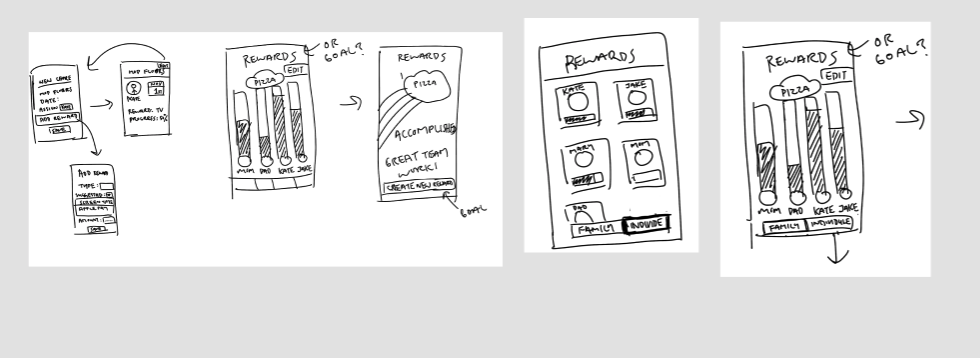 NEW CHORE
MOP FLOORS
DATE:
ASSIGN
ADD REWARD
SAVE
MOP FLOORS
EDIT
NOV
1st
REWARD: TV
PROGRESS: 0%
ADD REWARD
TYPE:
SUGGESTED:
SCREEN TIME
APPLE PAY
AMOUNT:
SAVE
REWARDS
OR
GOAL?
EDIT
PIZZA
MOM DAD KATE JAKE
REWARDS
PIZZA
ACCOMPLISHED
GREAT TEAM
WORK!
CREATE NEW REWARD
GOAL
REWARDS
KATE
JAKE
MARY
MOM
DAD
FAMILY
REWARDS
OR
GOAL?
EDIT
PIZZA
MOM DAD KATE JAKE
FAMILY